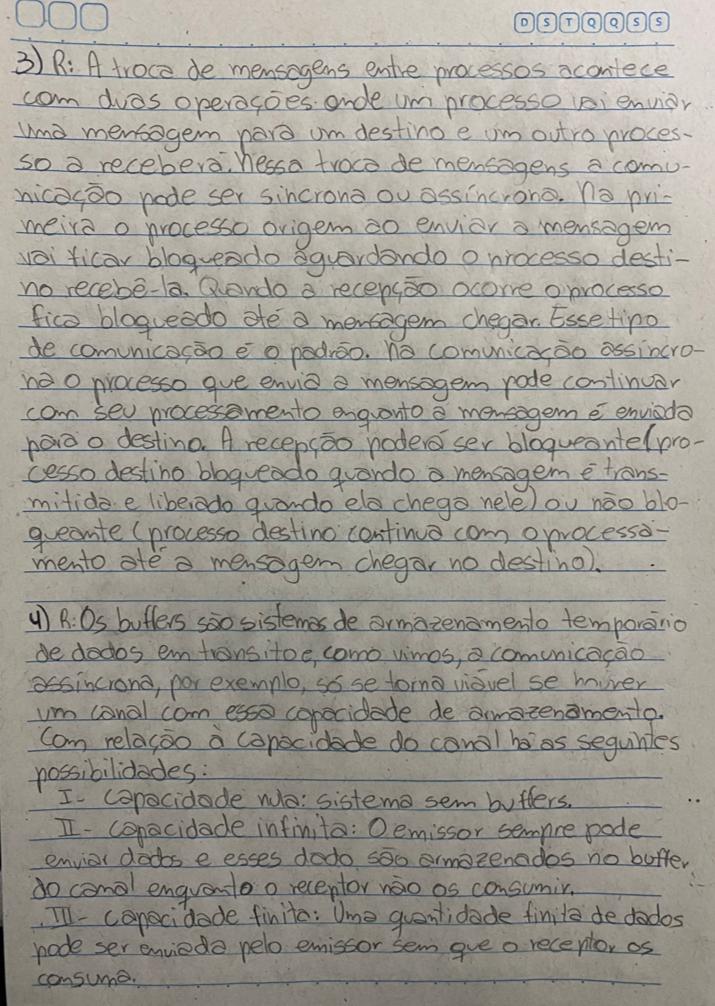 D S T Q Q S S
3) R: A troca de mensagens entre processos acontece
com duas operações onde um processo vai enviar
uma mensagem para um destino e um outro proces-
so a receberá. Nessa troca de mensagens a comu-
nicação pode ser síncrona ou assíncrona. Na pri-
meira o processo origem ao enviar a mensagem
vai ficar bloqueado aguardando o processo desti-
no recebê-la. Quando a recepção ocorre o processo
fica bloqueado até a mensagem chegar. Esse tipo
de comunicação é o padrão. Na comunicação assíncro-
na o processo que envia a mensagem pode continuar
com seu processamento enquanto a mensagem é enviada
para o destino. A recepção poderá ser bloqueante (pro-
cesso destino bloqueado quando a mensagem é trans-
mitida e liberado quando ela chega nele) ou não blo-
queante (processo destino continua com o processa-
mento até a mensagem chegar no destino).
4) R: Os buffers são sistemas de armazenamento temporário
de dados em trânsito e, como vimos, a comunicação
assíncrona, por exemplo, só se torna viável se houver
um canal com essa capacidade de armazenamento.
Com relação à capacidade do canal há as seguintes
possibilidades:
I- Capacidade nula: sistema sem buffers.
II- Capacidade infinita: O emissor sempre pode
enviar dados e esses dado são armazenados no buffer
do canal enquanto o receptor não os consumir.
III- Capacidade finita: Uma quantidade finita de dados
pode ser enviada pelo emissor sem que o receptor os
consuma.